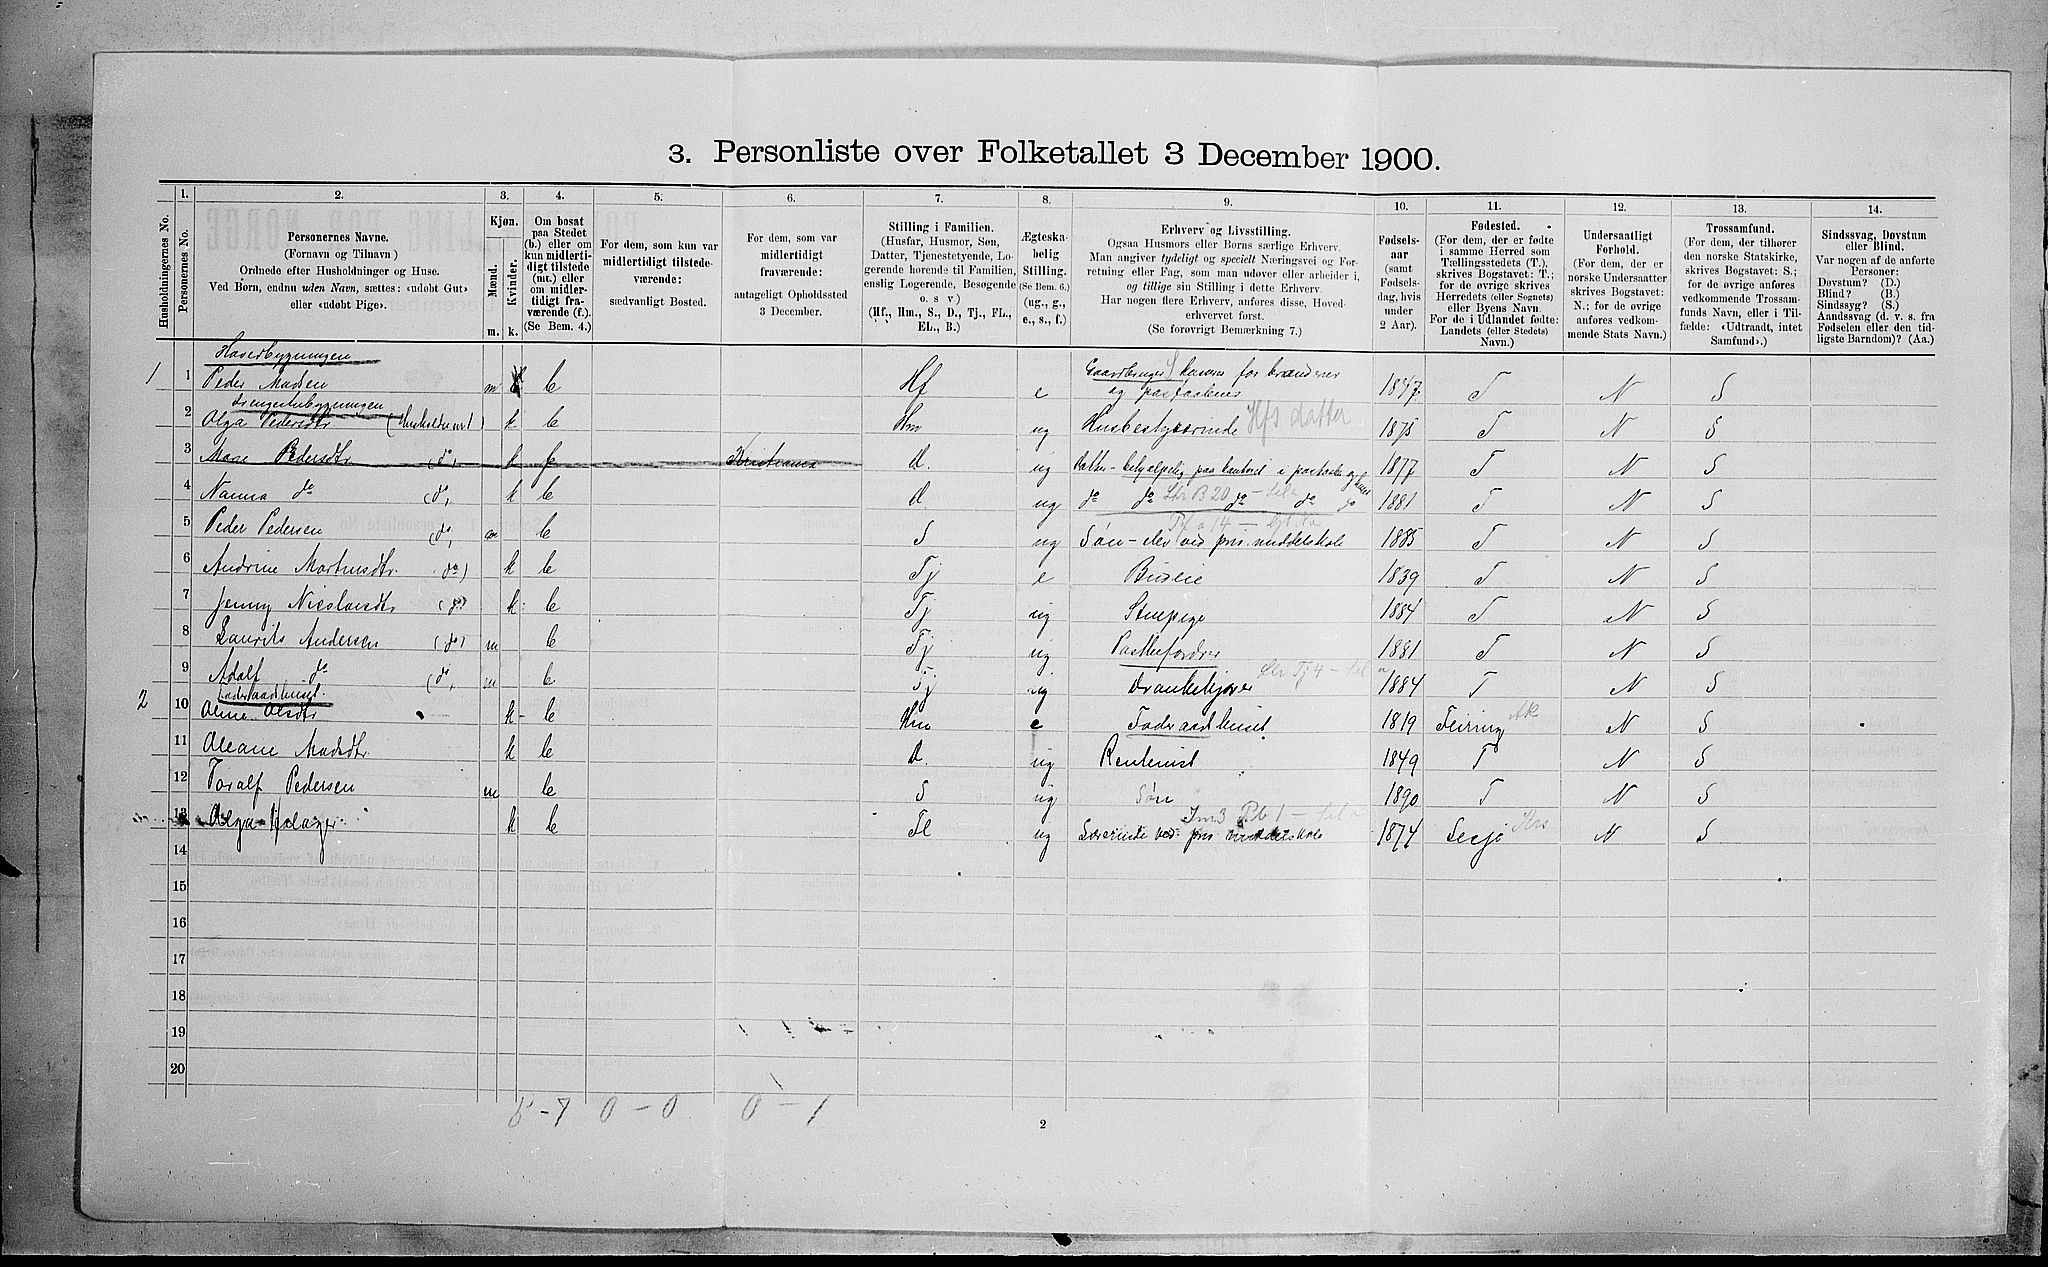 3. Personliste over Folketallet 3 December 1900.
Husholdningernes No.
1.
Personernes No.
2.
Personernes Navne.
(Fornavn og Tilnavn)
Ordnede efter Husholdninger og Huse.
Ved Børn, endnu uden Navn, sættes: «udøbt Gut»
eller «udøbt Pige».
3.
Kjøn.
Mænd.
m.
Kvinder.
k.
4.
Om bosat
paa Stedet
(b.) eller om
kun midlerti-
digt tilstede
(mt.) eller
om midler-
tidigt fra-
værende (f.).
(Se Bem. 4.)
5.
For dem, som kun var
midlertidigt tilstede-
værende:
sædvanligt Bosted.
6.
For dem, som var
midlertidigt
fraværende:
antageligt Opholdssted
3 December.
7.
Stilling i Familien.
(Husfar, Husmor, Søn,
Datter, Tjenestetyende, Lo-
gerende hørende til Familien,
enslig Logerende, Besøgende
o. s v)
(Hf., Hm., S., D., Tj., FL.,
EL., B.)
8.
Ægteska-
belig
Stilling.
(Se Bem. 6.)
(ug., g.,
e., s., f.)
9.
Erhverv og Livsstilling.
Ogsaa Husmors eller Børns særlige Erhverv.
Man angiver tydeligt og specielt Næringsvei og For-
retning eller Fag, som man udøver eller arbeider i,
og tillige sin Stilling i dette Erhverv.
Har nogen flere Erhverv, anføres disse, Hoved-
erhvervet først.
(Se forøvrigt Bemærkning 7.)
10.
Fødsels-
aar
(samt
Fødsels-
dag, hvis
under
2 Aar).
11.
Fødested.
(For dem, der er fødte
i samme Herred som
Tællingsstedets (T.),
skrives Bogstavet: T.;
for de øvrige skrives
Herredets (eller Sognets)
eller Byens Navn.
For de i Udlandet fødte:
Landets (eller Stedets)
Navn.)
12.
Undersaatligt
Forhold.
(For dem, der er
norske Undersaatter
skrives Bogstavet:
N.; for de øvrige
anføres vedkom-
mende Stats Navn.)
13.
Trossamfund.
(For dem, der tilhører
den norske Statskirke,
skrives Bogstavet: S.;
for de øvrige anføres
vedkommende Trossam-
funds Navn, eller i Til-
fælde: «Udtraadt, intet
Samfund».)
14.
Sindssvag, Døvstum
eller Blind.
Var nogen af de anførte
Personer:
Døvstum? (D.)
Blind? (B.)
Sindssyg? (S.)
Aandssvag (d. v. s. fra
Fødselen eller den tid-
ligste Barndom)? (Aa.)
Hovedbygningen
1 1 Peder Madsen m b Hf e Gaardbruger, for og 1847 T N S
Drengestubygningen
2 Olga Pedersdtr k b Hm ug Husbestyrerinde Hfs datter 1875 T N S
3 Pedersdtr (do) k f Kristiania d. ug Datter - behjælpelig paa kontoret 1877 T N S
4 Nanna do (do) k b d ug do do Str B 20 do do do 1881 T N S
5 Peder Pedersen (do) m b S ug Søn - elev ved pri. middelskole 1885 T N S
6 Andrine Martinsdtr. (do) k b Tj e Budeie 1839 T N S
7 Jenny (do) k b Tj ug Stuepige 1884 T N S
8 Laurits Andersen (do) m b Tj ug Postbefordrer 1881 T N S
9 Adolf do (do) m b Tj ug 1884 T N S
Føderaadhuset.
2 10 Olsdtr k b Hm e Føderaadhuset. 1819 Feiring Ak N S
11 Oleane Madsdtr k b d. ug Rentenist 1849 T N S
12 Toralf Pedersen m b S ug Søn 1890 T N S
13 Olga k b Fl ug Lærerinde ved pri. middelskole 1874 Lesje Krs N S
14
15
16
17
18
19
20
5 - 7 0 - 0 0 - 1
2